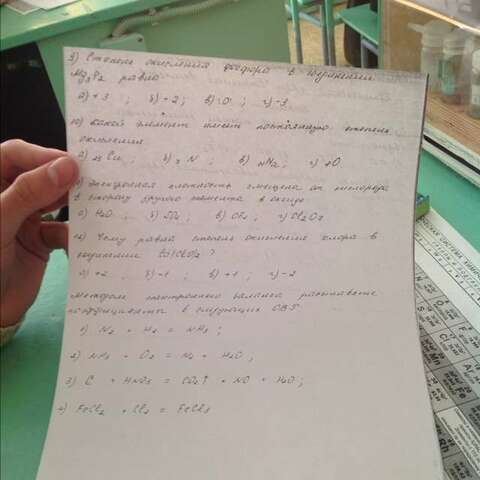 9) Степень окисления фосфора в соединении
Mg3P2 равна
а) +3 ; б) -2 ; в) 0 ; г) -3
10) Какой элемент имеет постоянную степень
окисления
а) Cu ; б) 7N ; в) 11Na ; г) 8O
11) Электронная плотность смещена от кислорода
в сторону другого элемента в оксиде
а) H2O ; б) SO2 ; в) OF2 ; г) Cl2O7
12) Чему равна степень окисления хлора в
соединении Ca(ClO)2 ?
а) +2 б) -1 ; в) +1 ; г) -2
Методом электронного баланса расставьте
коэффициенты в следующих ОВР
1) N2 + H2 = NH3 ;
2) NH3 + O2 = N2 + H2O ;
3) C + HNO3 = CO2↑ + NO + H2O ;
4) FeCl2 + Cl2 = FeCl3